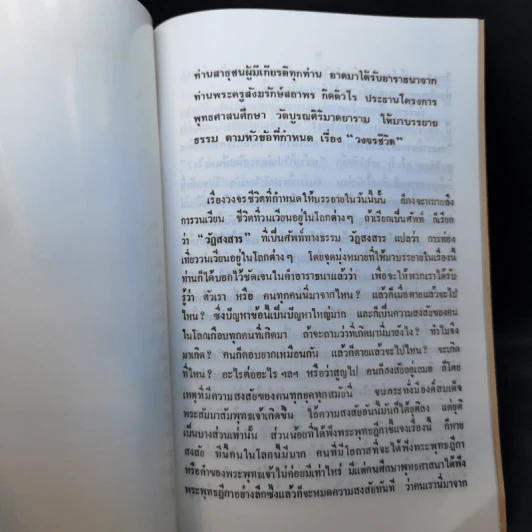 ท่านสาธุชนผู้มีเกียรติทุกท่าน อาตมาได้รับอาราธนาจาก
ท่านพระครูสังฆรักษ์สถาพร กิตติวโร ประธานโครงการ
พุทธศาสนศึกษา วัดบูรณศิริมาตยาราม ให้มาบรรยาย
ธรรม ตามหัวข้อที่กำหนด เรื่อง "วงจรชีวิต"
เรื่องวงจรชีวิตที่กำหนดให้บรรยายในวันนี้นั้น ก็คงจะหมายถึง
การวนเวียน ชีวิตที่วนเวียนอยู่ในโลกต่างๆ ถ้าเรียกเป็นศัพท์ ก็เรียก
ว่า "วัฏสงสาร" ที่เป็นศัพท์ทางธรรม วัฏสงสาร แปลว่า การท่อง
เที่ยววนเวียนอยู่ในโลกต่างๆ โดยจุดมุ่งหมายที่ให้มาบรรยายในเรื่องนี้
ท่านก็ได้บอกไว้ชัดเจนในคำอาราธนาแล้วว่า เพื่อจะให้พวกเราได้รับ
รู้ว่า ตัวเรา หรือ คนทุกคนนี่มาจากไหน? แล้วก็เมื่อตายแล้วจะไป
ไหน? ซึ่งปัญหาข้อนี้เป็นปัญหาใหญ่มาก และก็เป็นความสงสัยของคน
ในโลกเกือบทุกคนที่เกิดมา ถ้าจะถามว่าที่เกิดมานี่มายังไง? ทำไมจึง
มาเกิด? คนก็ตอบยากเหมือนกัน แล้วก็ตายแล้วจะไปไหน? จะเกิด
ที่ไหน? อะไรต่ออะไร ฯลฯ หรือว่าสูญไป คนก็สงสัยอยู่เสมอ ก็โดย
เหตุที่มีความสงสัยของคนทุกยุคทุกสมัยนี่ จนกระทั่งมีองค์สมเด็จ
พระสัมมาสัมพุทธเจ้าเกิดขึ้น ไอ้ความสงสัยอันนี้มันก็ได้ยุติลง แต่ยุติ
เป็นบางส่วนเท่านั้น ส่วนน้อยที่ได้ฟังพระพุทธฎีกาชี้แจงเรื่องนี้ ก็หาย
สงสัย ทีนี้คนในโลกนี้มีมาก คนที่มีโอกาสที่จะได้ฟังพระพุทธฎีกา
หรือคำของพระพุทธเจ้าไม่ค่อยมีเท่าไหร่ มีแต่คนศึกษาพุทธศาสนาได้ฟัง
พระพุทธฎีกาอย่างลึกซึ้งแล้วก็จะหมดความสงสัยทันที ว่าคนเรานี่มาจาก